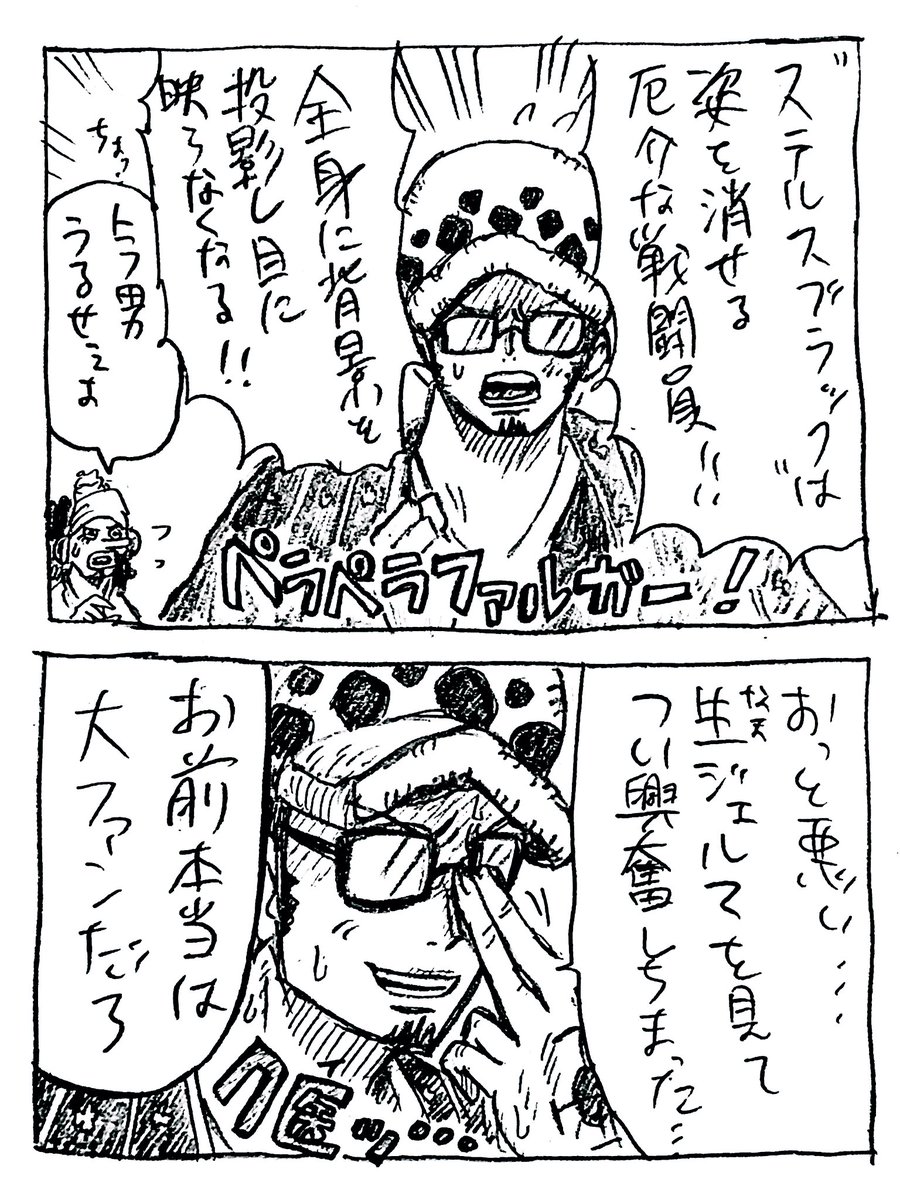 "ステルスブラック"は
姿を消せる
厄介な戦闘員!!
全身に背景を
投影し目に
映らなくなる!!
ちょっ
トラ男
うるせェよ
ペラペラファルガー!
おっと悪い...
生ジェルマを見て
なま
つい興奮しちまった...
お前本当は
大ファンだろ
ッ...